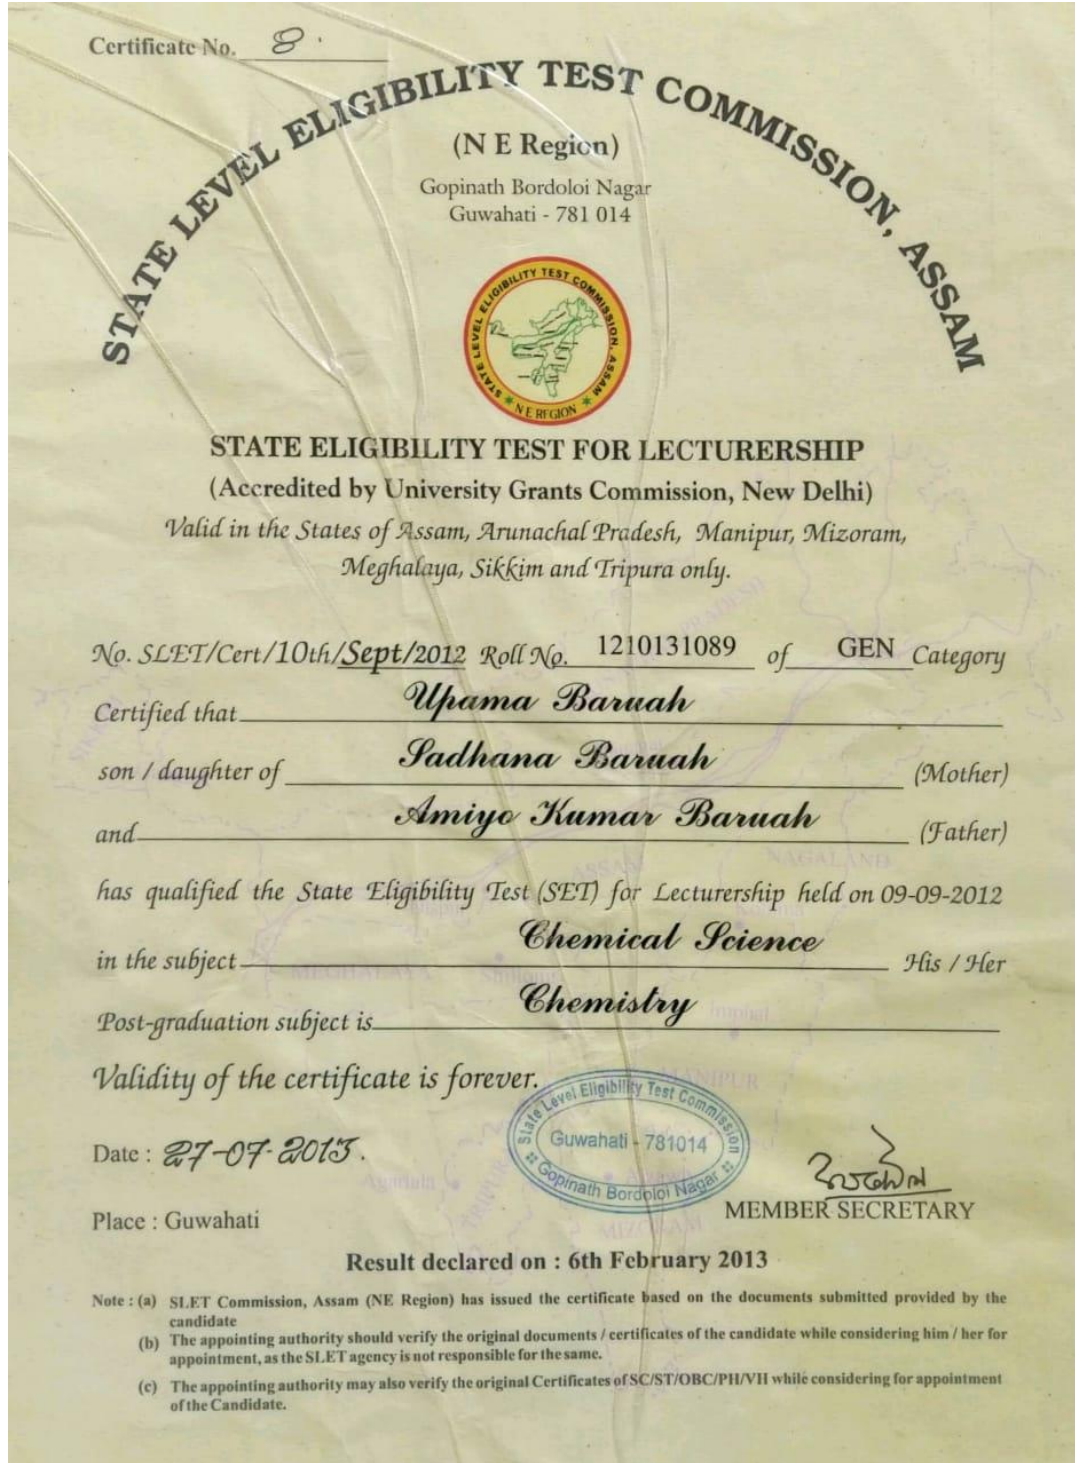 Certificate No. 8.
STATE LEVEL ELIGIBILITY TEST COMMISSION, ASSAM
(N E Region)
Gopinath Bordoloi Nagar
Guwahati - 781 014
STATE LEVEL ELIGIBILITY TEST COMMISSION, ASSAM
N E REGION
STATE ELIGIBILITY TEST FOR LECTURERSHIP
(Accredited by University Grants Commission, New Delhi)
Valid in the States of Assam, Arunachal Pradesh, Manipur, Mizoram,
Meghalaya, Sikkim and Tripura only.
No. SLET/Cert/10th/Sept/2012 Roll No. 1210131089 of GEN Category
Certified that Upama Baruah
son / daughter of Sadhana Baruah (Mother)
and Amiyo Kumar Baruah (Father)
has qualified the State Eligibility Test (SET) for Lecturership held on 09-09-2012
in the subject Chemical Science His / Her
Post-graduation subject is Chemistry
Validity of the certificate is forever.
State Level Eligibility Test Commission
Guwahati - 781014
Gopinath Bordoloi Nagar
Date : 27-07-2013.
MEMBER SECRETARY
Place : Guwahati
Result declared on : 6th February 2013
Note : (a) SLET Commission, Assam (NE Region) has issued the certificate based on the documents submitted provided by the
candidate
(b) The appointing authority should verify the original documents / certificates of the candidate while considering him / her for
appointment, as the SLET agency is not responsible for the same.
(c) The appointing authority may also verify the original Certificates of SC/ST/OBC/PH/VH while considering for appointment
of the Candidate.